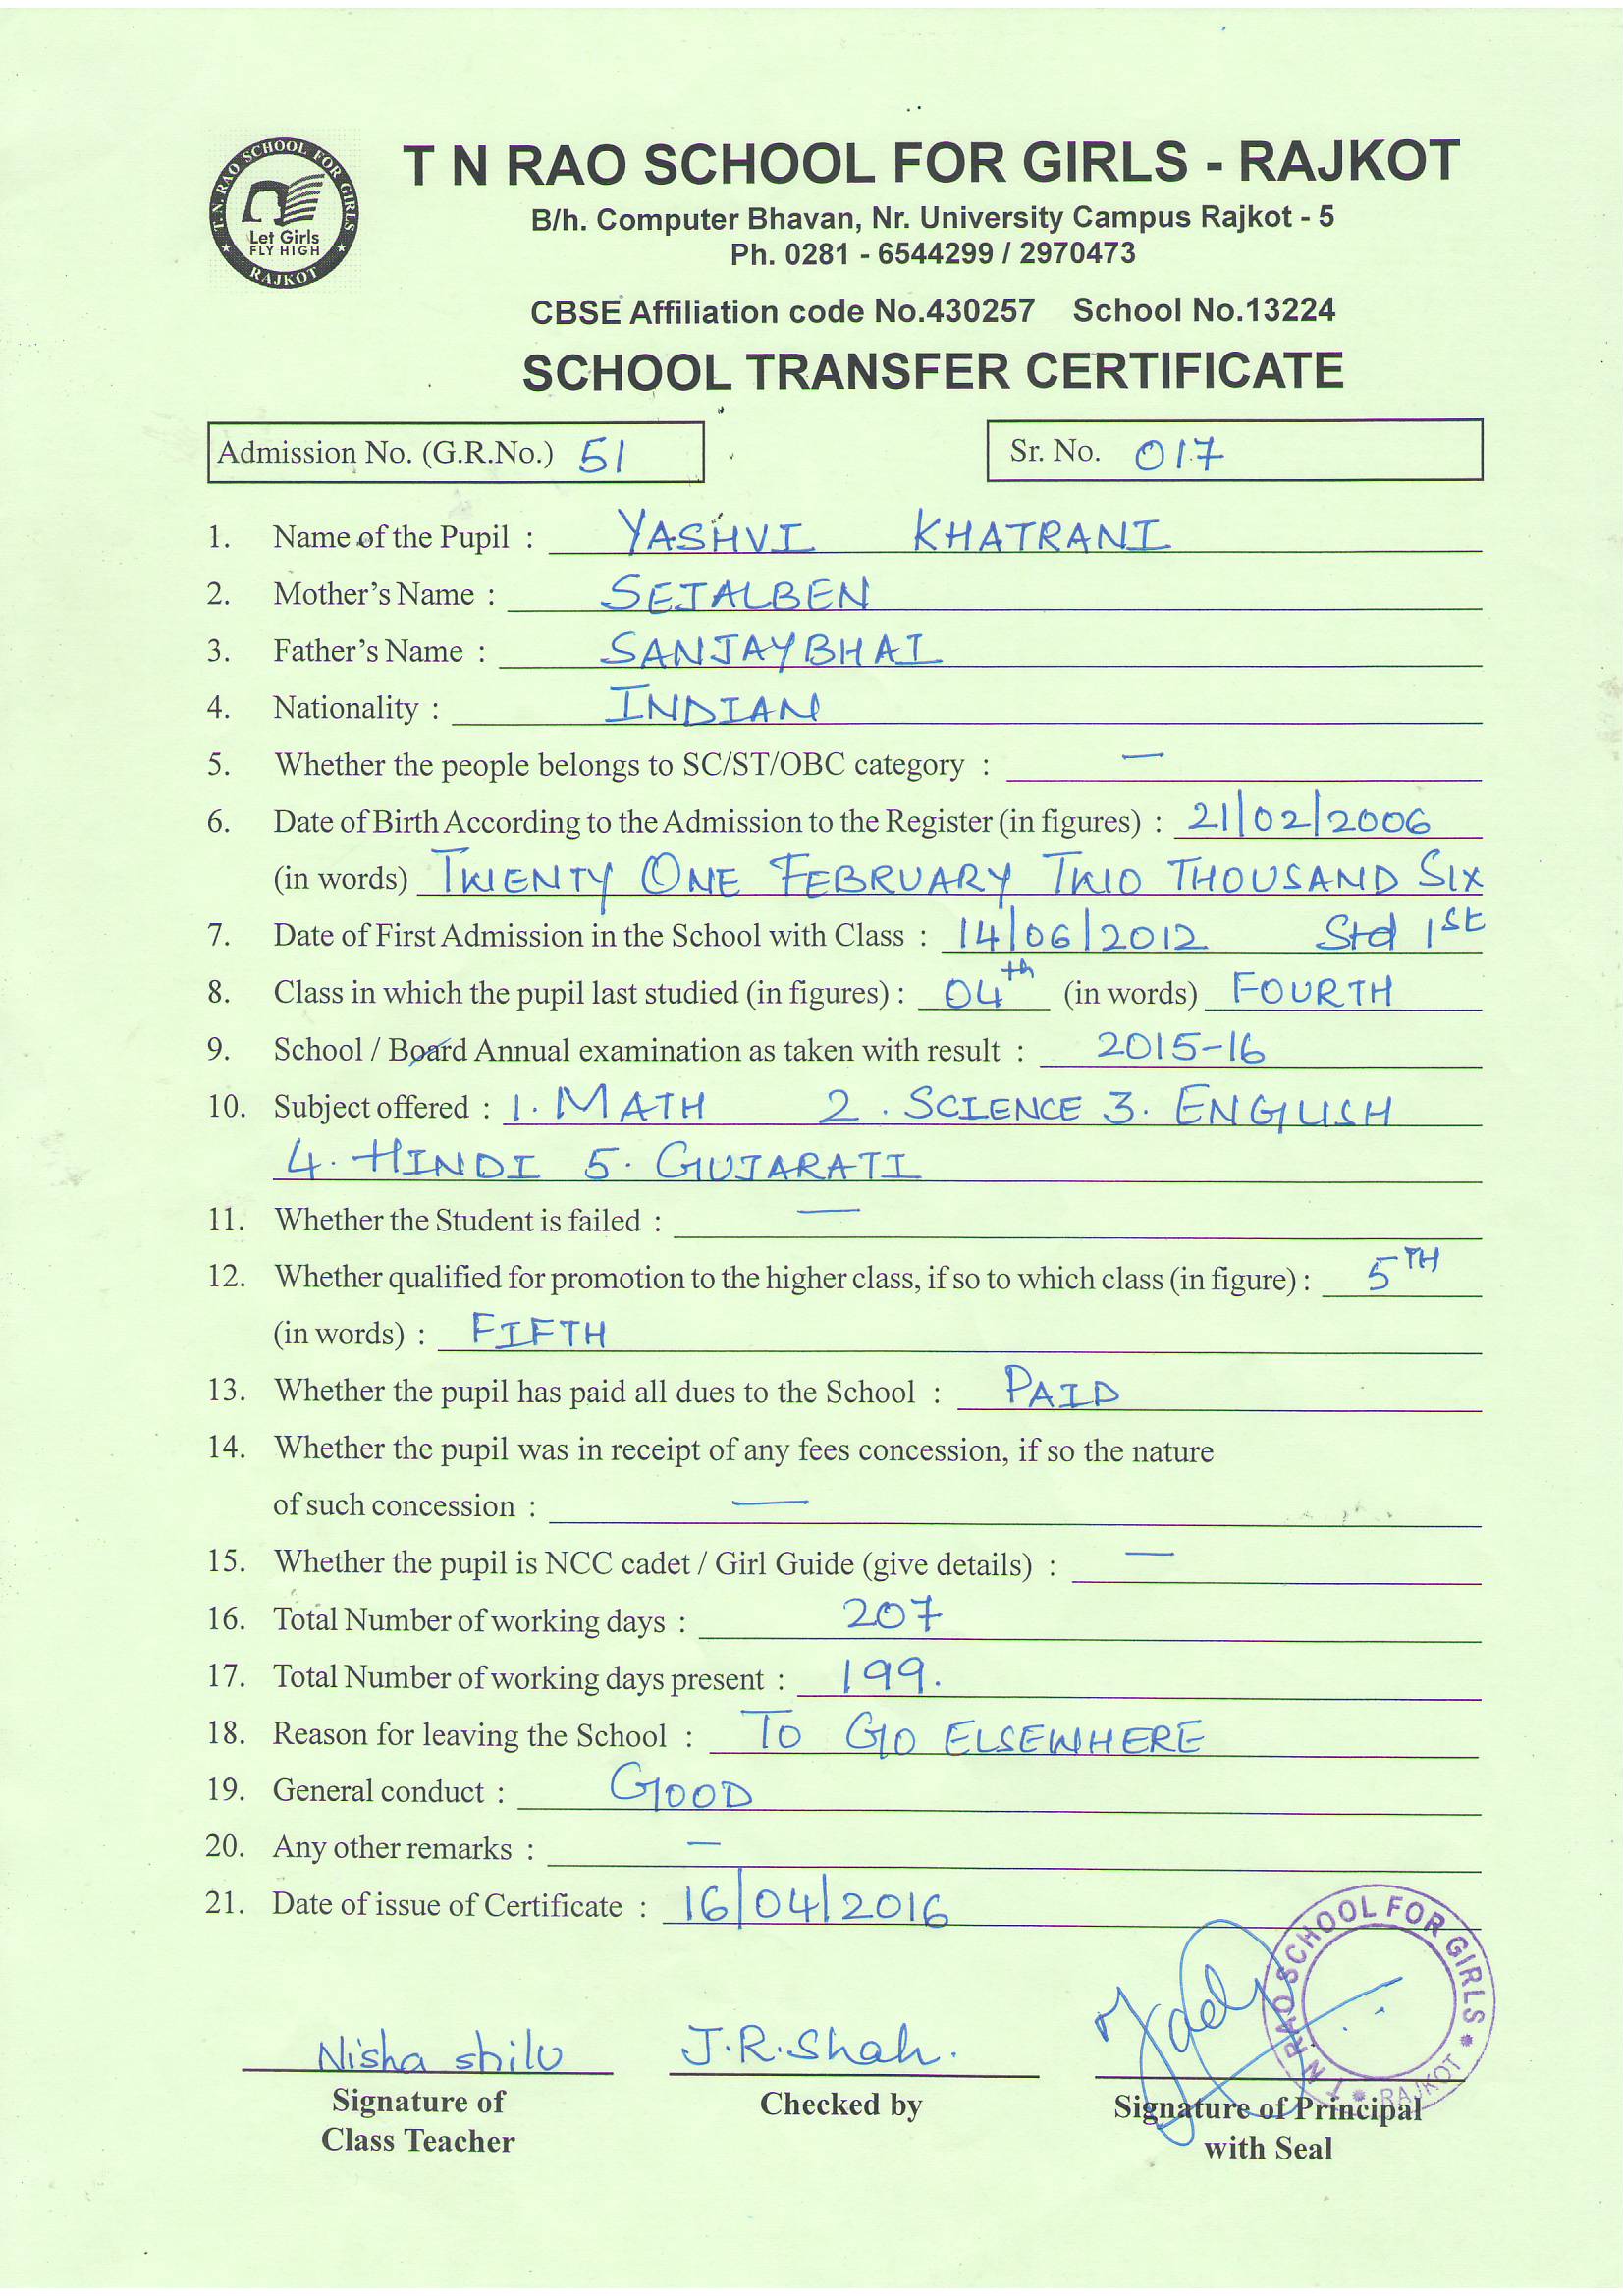 T. N. RAO SCHOOL FOR GIRLS
Let Girls
FLY HIGH
RAJKOT
T N RAO SCHOOL FOR GIRLS - RAJKOT
B/h. Computer Bhavan, Nr. University Campus Rajkot - 5
Ph. 0281 - 6544299 / 2970473
CBSE Affiliation code No.430257 School No.13224
SCHOOL TRANSFER CERTIFICATE
Admission No. (G.R.No.) 51 Sr. No. 017
1. Name of the Pupil : YASHVI KHATRANI
2. Mother's Name : SEJALBEN
3. Father's Name : SANJAYBHAI
4. Nationality : INDIAN
5. Whether the people belongs to SC/ST/OBC category : —
6. Date of Birth According to the Admission to the Register (in figures) : 21/02/2006
(in words) TWENTY ONE FEBRUARY TWO THOUSAND SIX
7. Date of First Admission in the School with Class : 14/06/2012 Std 1st
8. Class in which the pupil last studied (in figures) : 04th (in words) FOURTH
9. School / Board Annual examination as taken with result : 2015-16
10. Subject offered : 1. MATH 2. SCIENCE 3. ENGLISH
4. HINDI 5. GUJARATI
11. Whether the Student is failed : —
12. Whether qualified for promotion to the higher class, if so to which class (in figure) : 5TH
(in words) : FIFTH
13. Whether the pupil has paid all dues to the School : PAID
14. Whether the pupil was in receipt of any fees concession, if so the nature
of such concession : —
15. Whether the pupil is NCC cadet / Girl Guide (give details) : —
16. Total Number of working days : 207
17. Total Number of working days present : 199.
18. Reason for leaving the School : TO GO ELSEWHERE
19. General conduct : GOOD
20. Any other remarks : —
21. Date of issue of Certificate : 16/04/2016
T N RAO SCHOOL FOR GIRLS
RAJKOT
Nisha shilu J.R.Shah.
Signature of Checked by Signature of Principal
Class Teacher with Seal